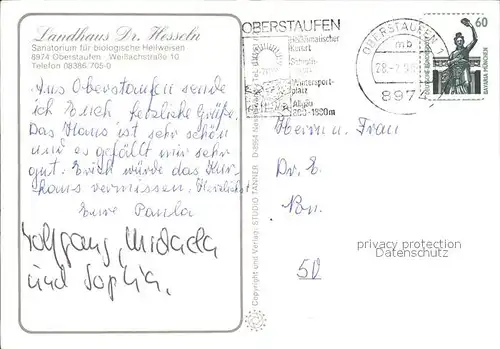 Landhaus Dr. Hesseln
Sanatorium für biologische Heilweisen
8974 Oberstaufen · Weißlachstraße 10
Telefon 08386-705-0
Aus Oberstaufen sende
ich Euch herzliche Grüße.
Das Haus ist sehr schön
und es gefällt mir sehr
gut. Erich würde das Kur-
haus vermissen. Herzlichst
Eure Paula
Wolfgang, Michaela
und Sophia.
Copyright und Verlag: STUDIO TANNER · D-8964
OBERSTAUFEN
Heilklimatischer
Kurort
Schroth-
Wintersport-
platz
Allgäu
800-1800m
OBERSTAUFEN 1
mb
8974
60
DEUTSCHE BUNDESPOST
BAVARIA MÜNCHEN
Herrn u. Frau
Dr. E.
Bn.
50
privacy protection
Datenschutz